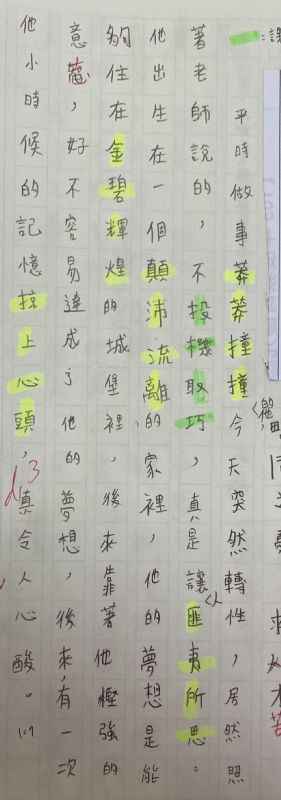 平時做事莽莽撞撞今天突然轉性，居然照
著老師說的，不投機取巧，真是讓人匪夷所思。
他出生在一個顛沛流離的家裡，他的夢想是能
夠住在金碧輝煌的城堡裡，後來，靠著他堅強的
意志，好不容易達成了他的夢想，後來，有一次
他小時候的記憶掠上心頭，真令人心酸。